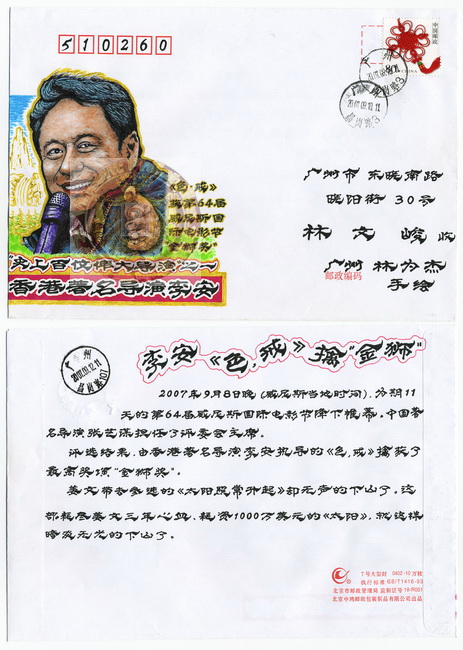 510260
中国邮政
CHINA
广州
2007.09.12.11
《色·戒》
获第64届
威尼斯国
际电影节
"金狮奖"
史上百位伟大导演之一
香港著名导演李安
广州市 东晓南路
晓阳街 30号
林文峻 收
邮政编码
广州 林为杰
手绘
广州
李安《色,戒》擒"金狮"
2007年9月8日晚(威尼斯当地时间),为期11
天的第64届威尼斯国际电影节降下帷幕。中国著
名导演张艺谋担任了评委会主席。
评选结果,由香港著名导演李安执导的《色,戒》擒获了
最高奖项"金狮奖"。
姜文带去参选的《太阳照常升起》却无声的下山了。这
部耗尽姜文三年心血、耗资1000万美元的《太阳》,就这样
暗淡无光的下山了。
7号大型封 0402-10万枚
执行标准:GB/T1416-93
北京市邮政管理局 监制证号19-R001
北京中鸿邮政包装制品有限公司